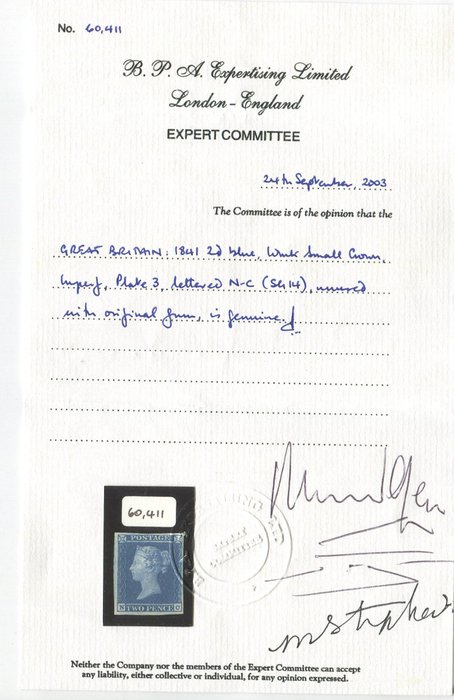 No. 60,411
B. P. A. Expertising Limited
London - England
EXPERT COMMITTEE
24th September, 2003
The Committee is of the opinion that the
GREAT BRITAIN: 1841 2d blue, Wmk Small Crown,
Imperf, Plate 3, lettered N-C (SG14), unused
with original gum, is genuine.
60,411
POSTAGE
N TWO PENCE C
EXPERT
COMMITTEE
Neither the Company nor the members of the Expert Committee can accept
any liability, either collective or individual, for any opinion expressed.